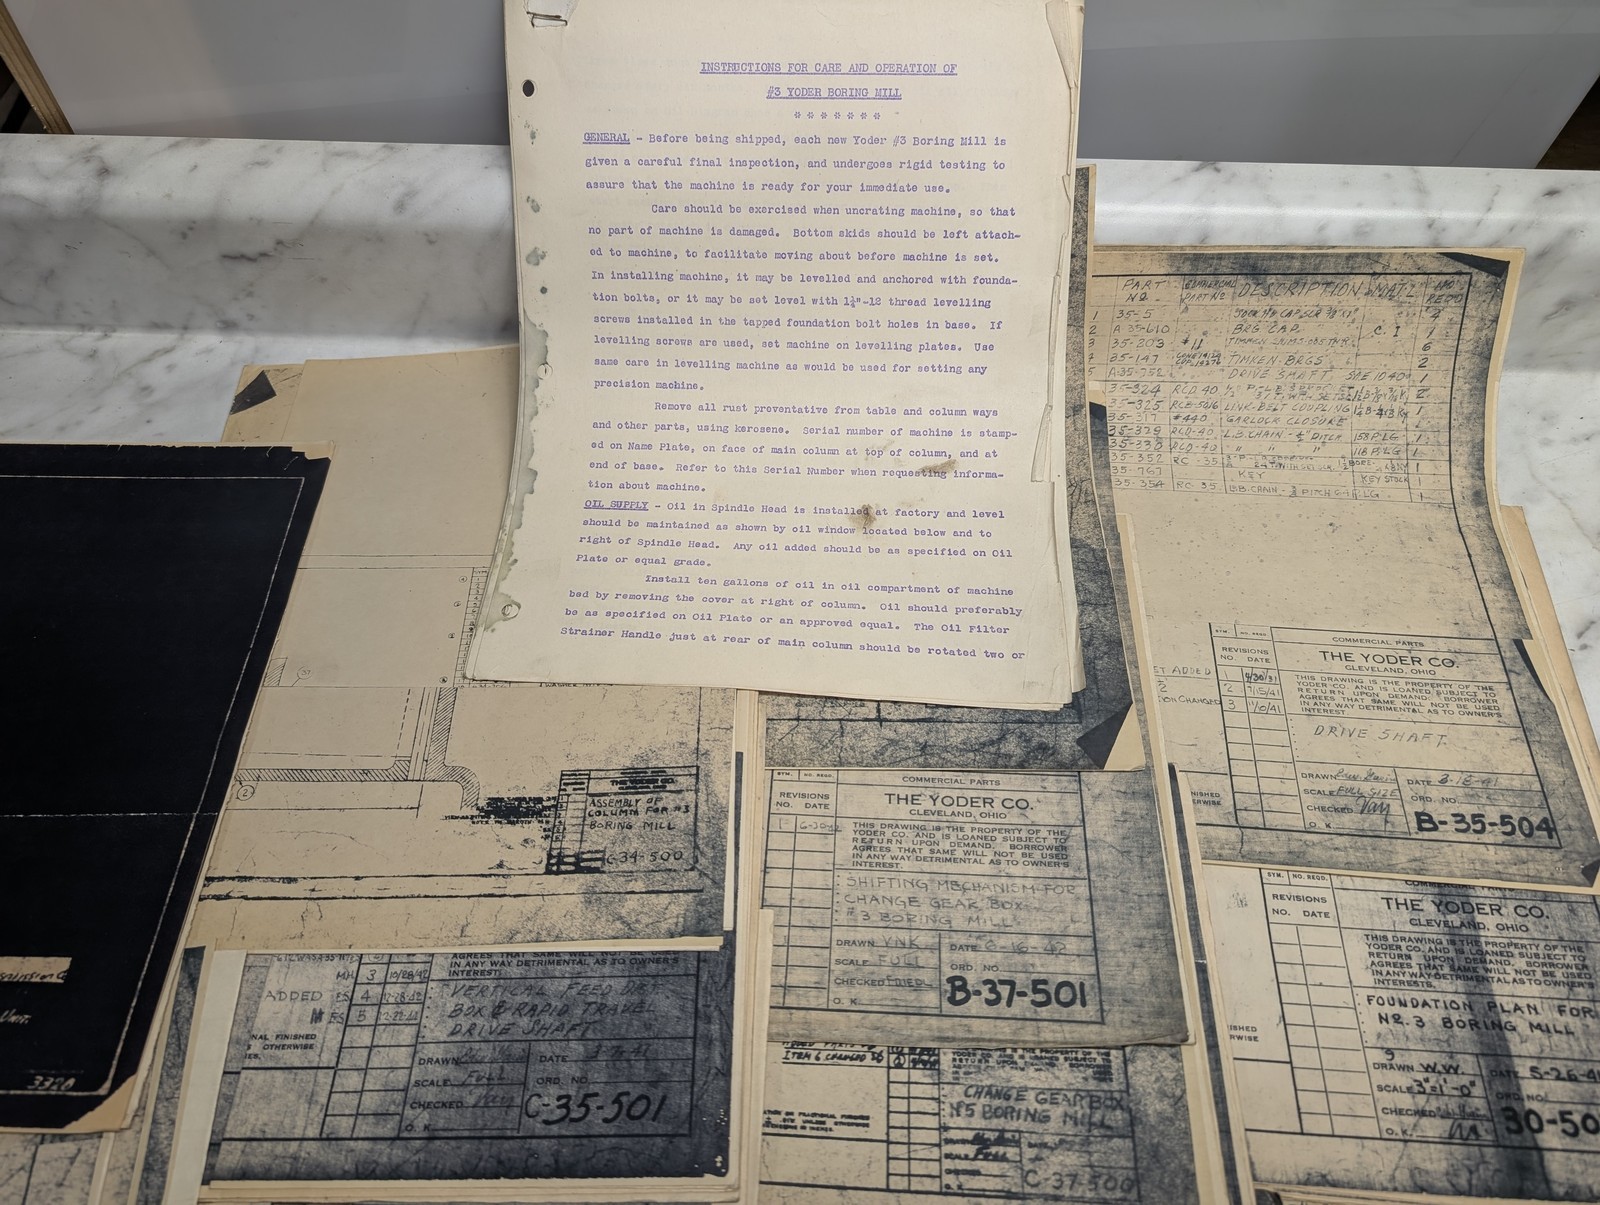 INSTRUCTIONS FOR CARE AND OPERATION OF
#3 YODER BORING MILL
* * * * * * *
GENERAL - Before being shipped, each new Yoder #3 Boring Mill is
given a careful final inspection, and undergoes rigid testing to
assure that the machine is ready for your immediate use.
Care should be exercised when uncrating machine, so that
no part of machine is damaged. Bottom skids should be left attach-
ed to machine, to facilitate moving about before machine is set.
In installing machine, it may be levelled and anchored with founda-
tion bolts, or it may be set level with 1¼"-12 thread levelling
screws installed in the tapped foundation bolt holes in base. If
levelling screws are used, set machine on levelling plates. Use
same care in levelling machine as would be used for setting any
precision machine.
Remove all rust preventative from table and column ways
and other parts, using kerosene. Serial number of machine is stamp-
ed on Name Plate, on face of main column at top of column, and at
end of base. Refer to this Serial Number when requesting informa-
tion about machine.
OIL SUPPLY - Oil in Spindle Head is installed at factory and level
should be maintained as shown by oil window located below and to
right of Spindle Head. Any oil added should be as specified on Oil
Plate or equal grade.
Install ten gallons of oil in oil compartment of machine
bed by removing the cover at right of column. Oil should preferably
be as specified on Oil Plate or an approved equal. The Oil Filter
Strainer Handle just at rear of main column should be rotated two or
PART NO. COMMERCIAL PART NO DESCRIPTION MATL NO REQD
1 35-5
2 A-35-610 BRG CAP C I 1
3 35-203 #11 6
4 35-147 TIMKEN BRGS 2
5 A-35-352 DRIVE SHAFT SAE 1040 1
35-324 RCD-40 2
35-325 RCB-5016 LINK-BELT COUPLING 1
35-377 #440 GARLOCK CLOSURE 1
35-329 RCD-40 L.B. CHAIN - ½ PITCH 158 P LG 1
35-330 RCD-40 " " " 118 P LG 1
35-352 RC-35 1
35-767 KEY KEY STOCK 1
35-354 RC-35 L.B. CHAIN - PITCH LG 1
SYM. NO. REQD. COMMERCIAL PARTS
REVISIONS
NO. DATE
THE YODER CO.
CLEVELAND, OHIO
1
2 7/15/41
3 11/6/41
THIS DRAWING IS THE PROPERTY OF THE
YODER CO. AND IS LOANED SUBJECT TO
RETURN UPON DEMAND. BORROWER
AGREES THAT SAME WILL NOT BE USED
IN ANY WAY DETRIMENTAL AS TO OWNER'S
INTEREST
DRIVE SHAFT
DRAWN DATE 3-18-41
SCALE FULL SIZE ORD. NO.
CHECKED
O. K.
B-35-504
ADDED
ION CHANGED
NISHED
ERWISE
2
ASSEMBLY OF
COLUMN FOR #3
BORING MILL
C-34-500
SYM. NO. REQD. COMMERCIAL PARTS
REVISIONS
NO. DATE
THE YODER CO.
CLEVELAND, OHIO
THIS DRAWING IS THE PROPERTY OF THE
YODER CO. AND IS LOANED SUBJECT TO
RETURN UPON DEMAND. BORROWER
AGREES THAT SAME WILL NOT BE USED
IN ANY WAY DETRIMENTAL AS TO OWNER'S
INTEREST.
SHIFTING MECHANISM FOR
CHANGE GEAR BOX
#3 BORING MILL
DRAWN VNK DATE 6-16-42
SCALE FULL ORD. NO.
CHECKED
O. K.
B-37-501
SYM. NO. REQD.
REVISIONS
NO. DATE
THE YODER CO.
CLEVELAND, OHIO
THIS DRAWING IS THE PROPERTY OF THE
YODER CO. AND IS LOANED SUBJECT TO
RETURN UPON DEMAND. BORROWER
AGREES THAT SAME WILL NOT BE USED
IN ANY WAY DETRIMENTAL AS TO OWNER'S
INTERESTS.
FOUNDATION PLAN FOR
NO. 3 BORING MILL
DRAWN W.W. DATE 5-26-4
SCALE 3"=1'-0" ORD. NO.
CHECKED
O. K.
30-50
ISHED
ERWISE
AGREES THAT SAME WILL NOT BE USED
IN ANY WAY DETRIMENTAL AS TO OWNER'S
INTEREST.
MH 3 10/28/42
ADDED ES 4 12-28-42
ES 5
VERTICAL FEED
BOX & RAPID TRAVEL
DRIVE SHAFT
NAL FINISHED
OTHERWISE
DRAWN DATE
SCALE FULL ORD. NO.
CHECKED
O. K.
C-35-501
ITEM 6 CHANGED
CHANGE GEAR BOX
Nº5 BORING MILL
SCALE FULL
O. K.
C-37-500
UNIT.
3320